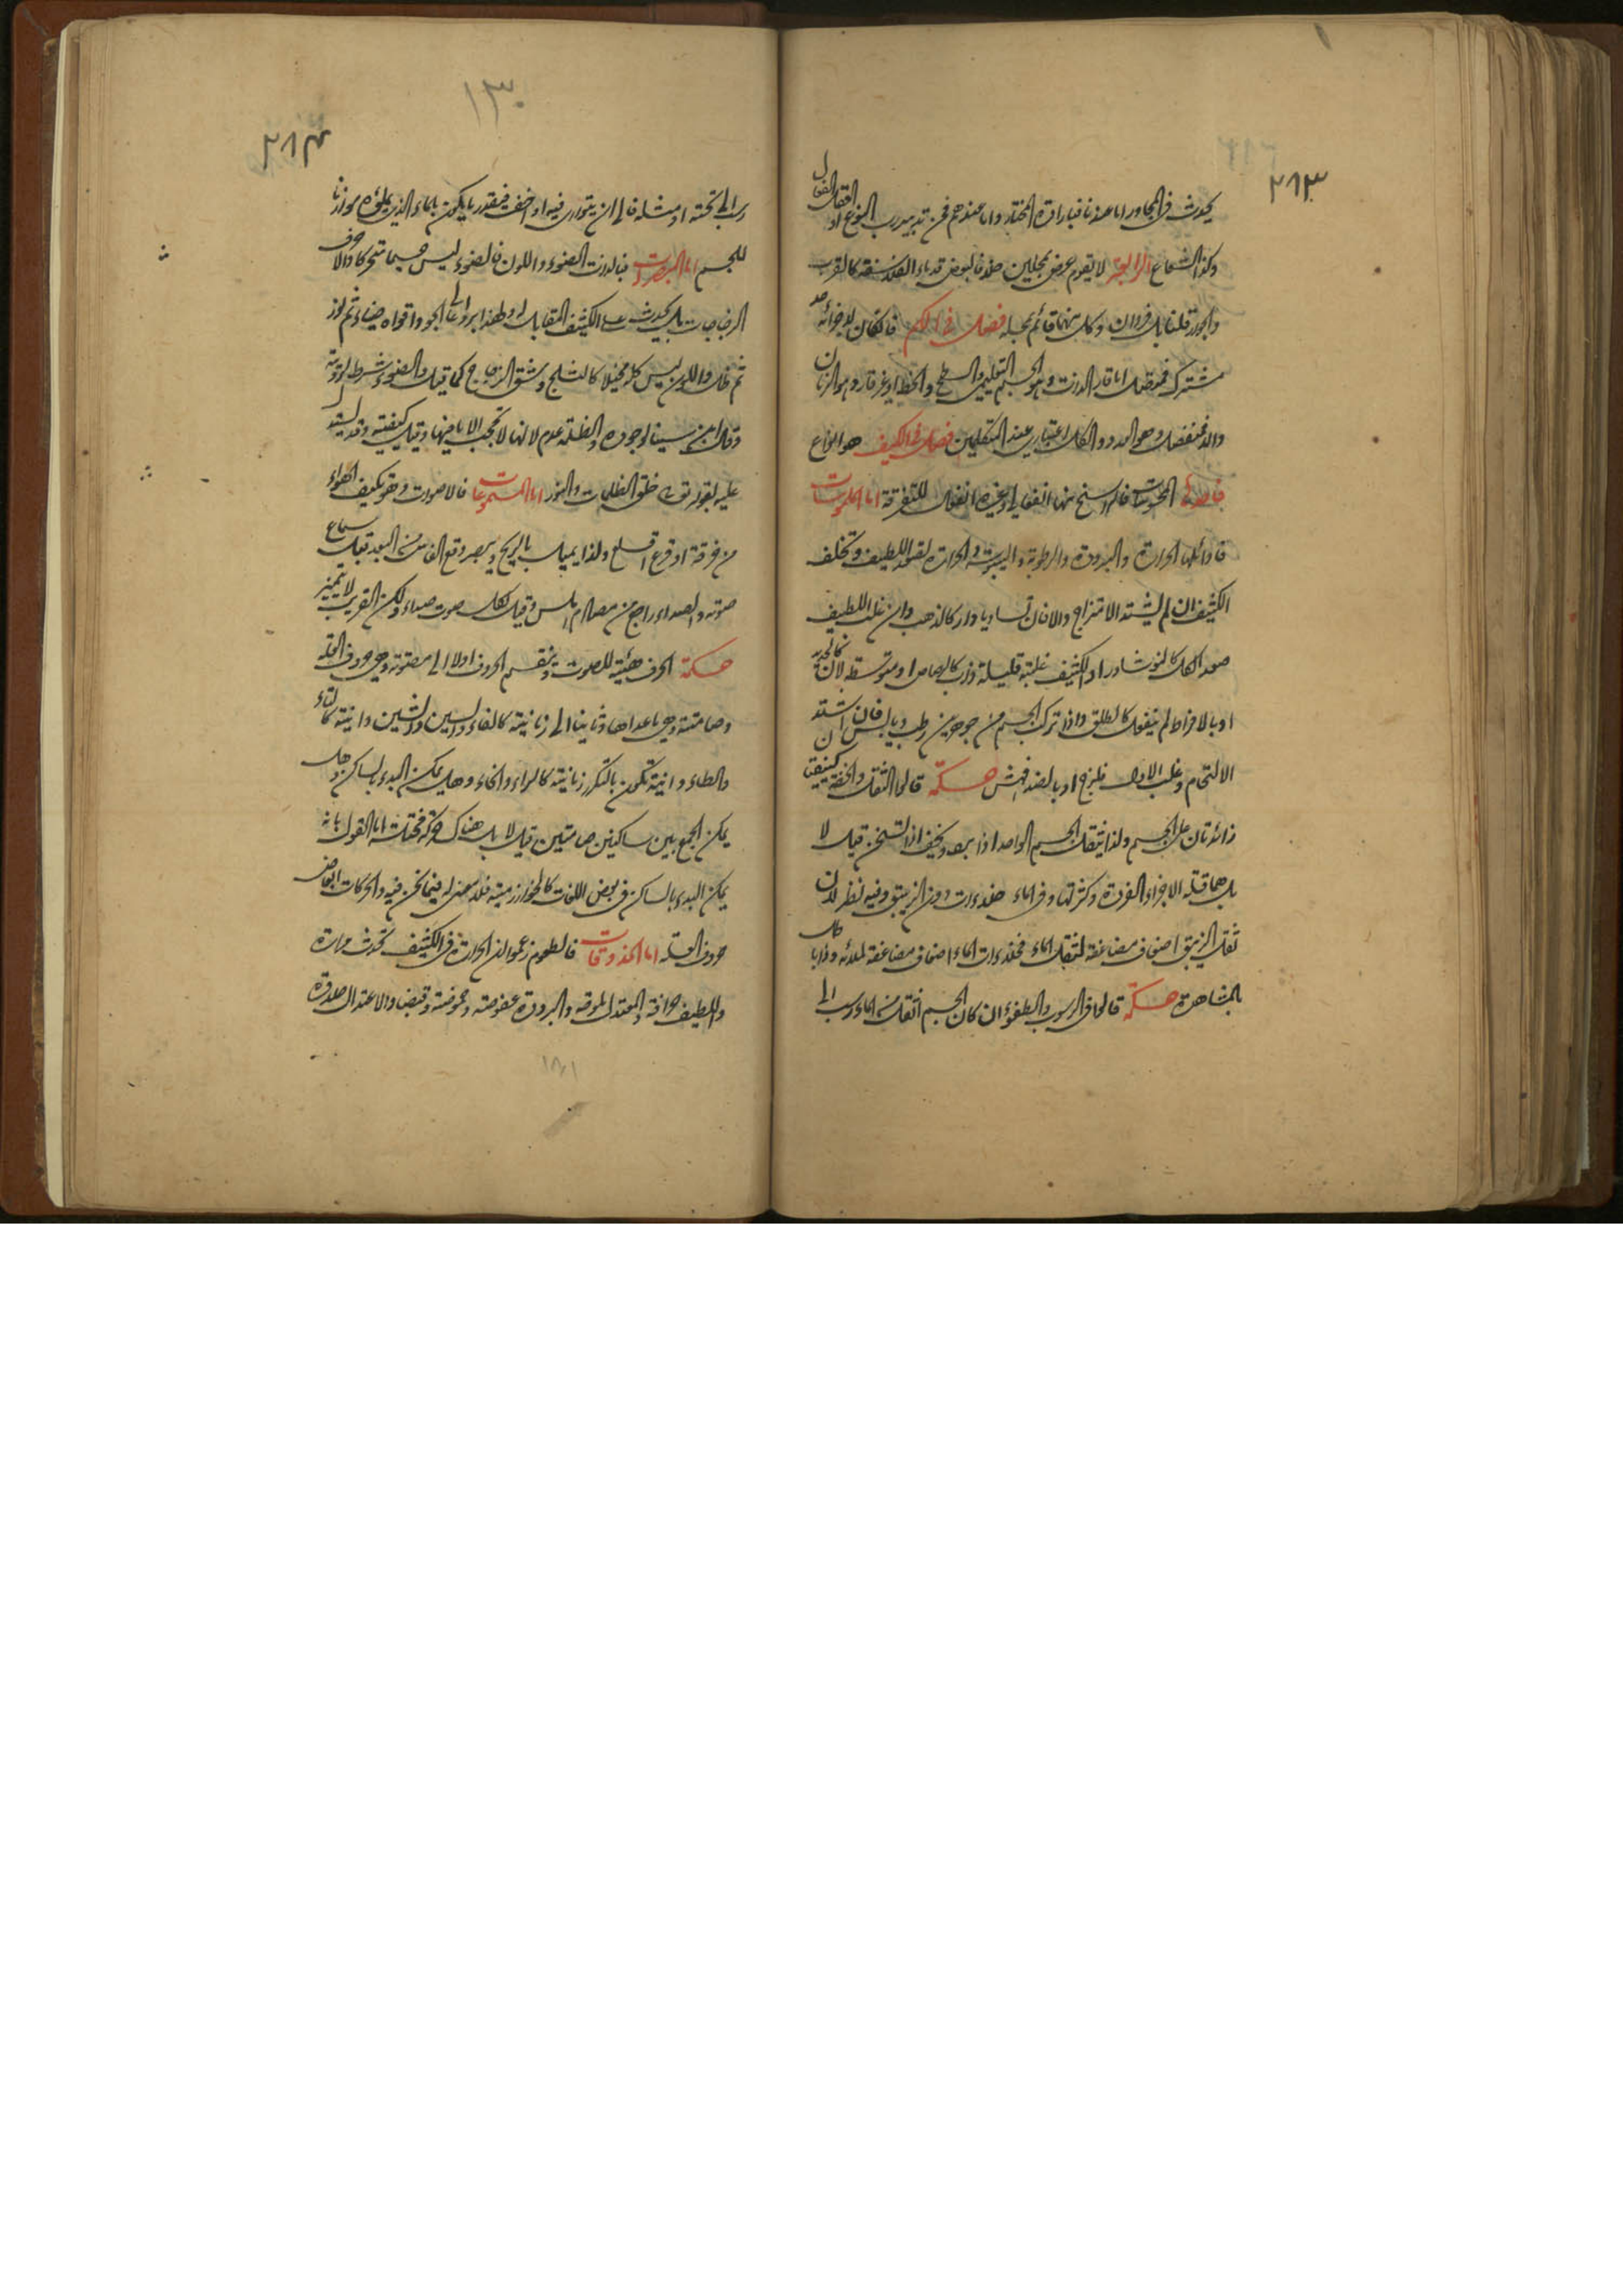 ٢٨٣
يحدث في المجاور اما عندنا فبارادة المختار واما عندهم فمن تدبير رب النوع او العقل الفعال
وكذا الشعاع الرابعة لا يقوم عرض بمحلين خلافا لبعض قدماء الفلاسفة كالقرب
والجوار قلنا بل فردان وكل منهما قائم بمحله فصل في الكم فان كان لاجزائه حد
مشترك فمتصل اما قار الذات وهو الجسم التعليمي والسطح والخط او غير قار وهو الزمان
والا فمنفصل وهو العدد والكل اعتباري عند المتكلمين فصل في الكيف هو انواع
المحسوسات فالراسخ منها انفعالي وغيره انفعال للتفرقة اما الملموسات
فاوائلها الحرارة والبرودة والرطوبة واليبوسة والحرارة تصعد اللطيف وتخلف
الكثيف ان لم يشتد الامتزاج والا فان تساويا دار كالذهب وان غلب اللطيف
صعد الكل كالنوشادر او الكثيف غلبة قليلة ذاب كالرصاص او متوسطة لان كالحديد
او بالافراط لم ينفعل كالطلق واذا تركب الجسم من جوهرين رطب ويابس فان اشتد
الالتحام وغلب الاول فلزج او بالضد فهش حكمة قالوا الثقل والخفة كيفيتان
زائدتان على الجسم ولذا يثقل الجسم الواحد اذا برد ويخف اذا تسخن قيل لا
بل هما قلة الاجزاء الفردة وكثرتها وفي الماء خلاءات دون الزيبق وفيه نظر لان
ثقل الزيبق اضعاف مضاعفة لثقل الماء فخلاءات الماء اضعاف مضاعفة لملائه وذا باطل
بالمشاهدة حكمة قالوا في الرسوب والطفو ان كان الجسم اثقل من الماء رسب الى
١٣٠
٢٨٤
رسب الى تحته او مثله فالى ان يتوارى فيه او اخف فبقدر ما يكون بالماء الذي يملؤه موازنا
للجسم اما المبصرات فبالذات الضوء واللون فالضوء ليس جسما متحركا والا خرق
الزجاجات بل يحدث على الكثيف المقابل او لطهذا الجو واقواه ضياء ثم نور
ثم ظل واللون ليس كله مخيلا كالثلج وشق الزجاج كما قيل والضوء شرط لرؤيته
وقال ابن سينا لوجوده والظلمة عدم لانها لا تحجب الا ما فيها وقيل كيفية وقد يستدل
عليه بقوله تع خلق الظلمات والنور اما المسموعات فالاصوات وهو تكيف الهواء
من فرقة او قرع او قلع ولذا يميل بالريح ويبصر وقع الفاس من البعد قبل سماع
صوته والصداء راجع من مصادم املس وقيل لكل صوت صداء ولكن القريب لا يتميز
حكمة الحرف هيئة للصوت وتنقسم الحروف اولا الى مصوتة وهي حروف العلة
وصامتة وهي ما عداها وثانيا الى زمانية كالفاء والسين والشين وانية كالتاء
والطاء وانية تكون بالتكرر زمانية كالراء والخاء وهل يمكن البدء بالساكن وهل
يمكن الجمع بين ساكنين صامتين قيل لا بل هناك حركة مختلسة اما القول بانه
يمكن البدء بالساكن في بعض اللغات كالخوارزمية فلا معنى له فيما نحن فيه والحركات ابعاض
حروف العلة اما المذوقات فالطعوم زعموا ان الحرارة في الكثيف تحدث مرارة
واللطيف حرافة والمعتدل ملوحة والبرودة عفوصة وحموضة وقبضا والاعتدال حلاوة
١٨١